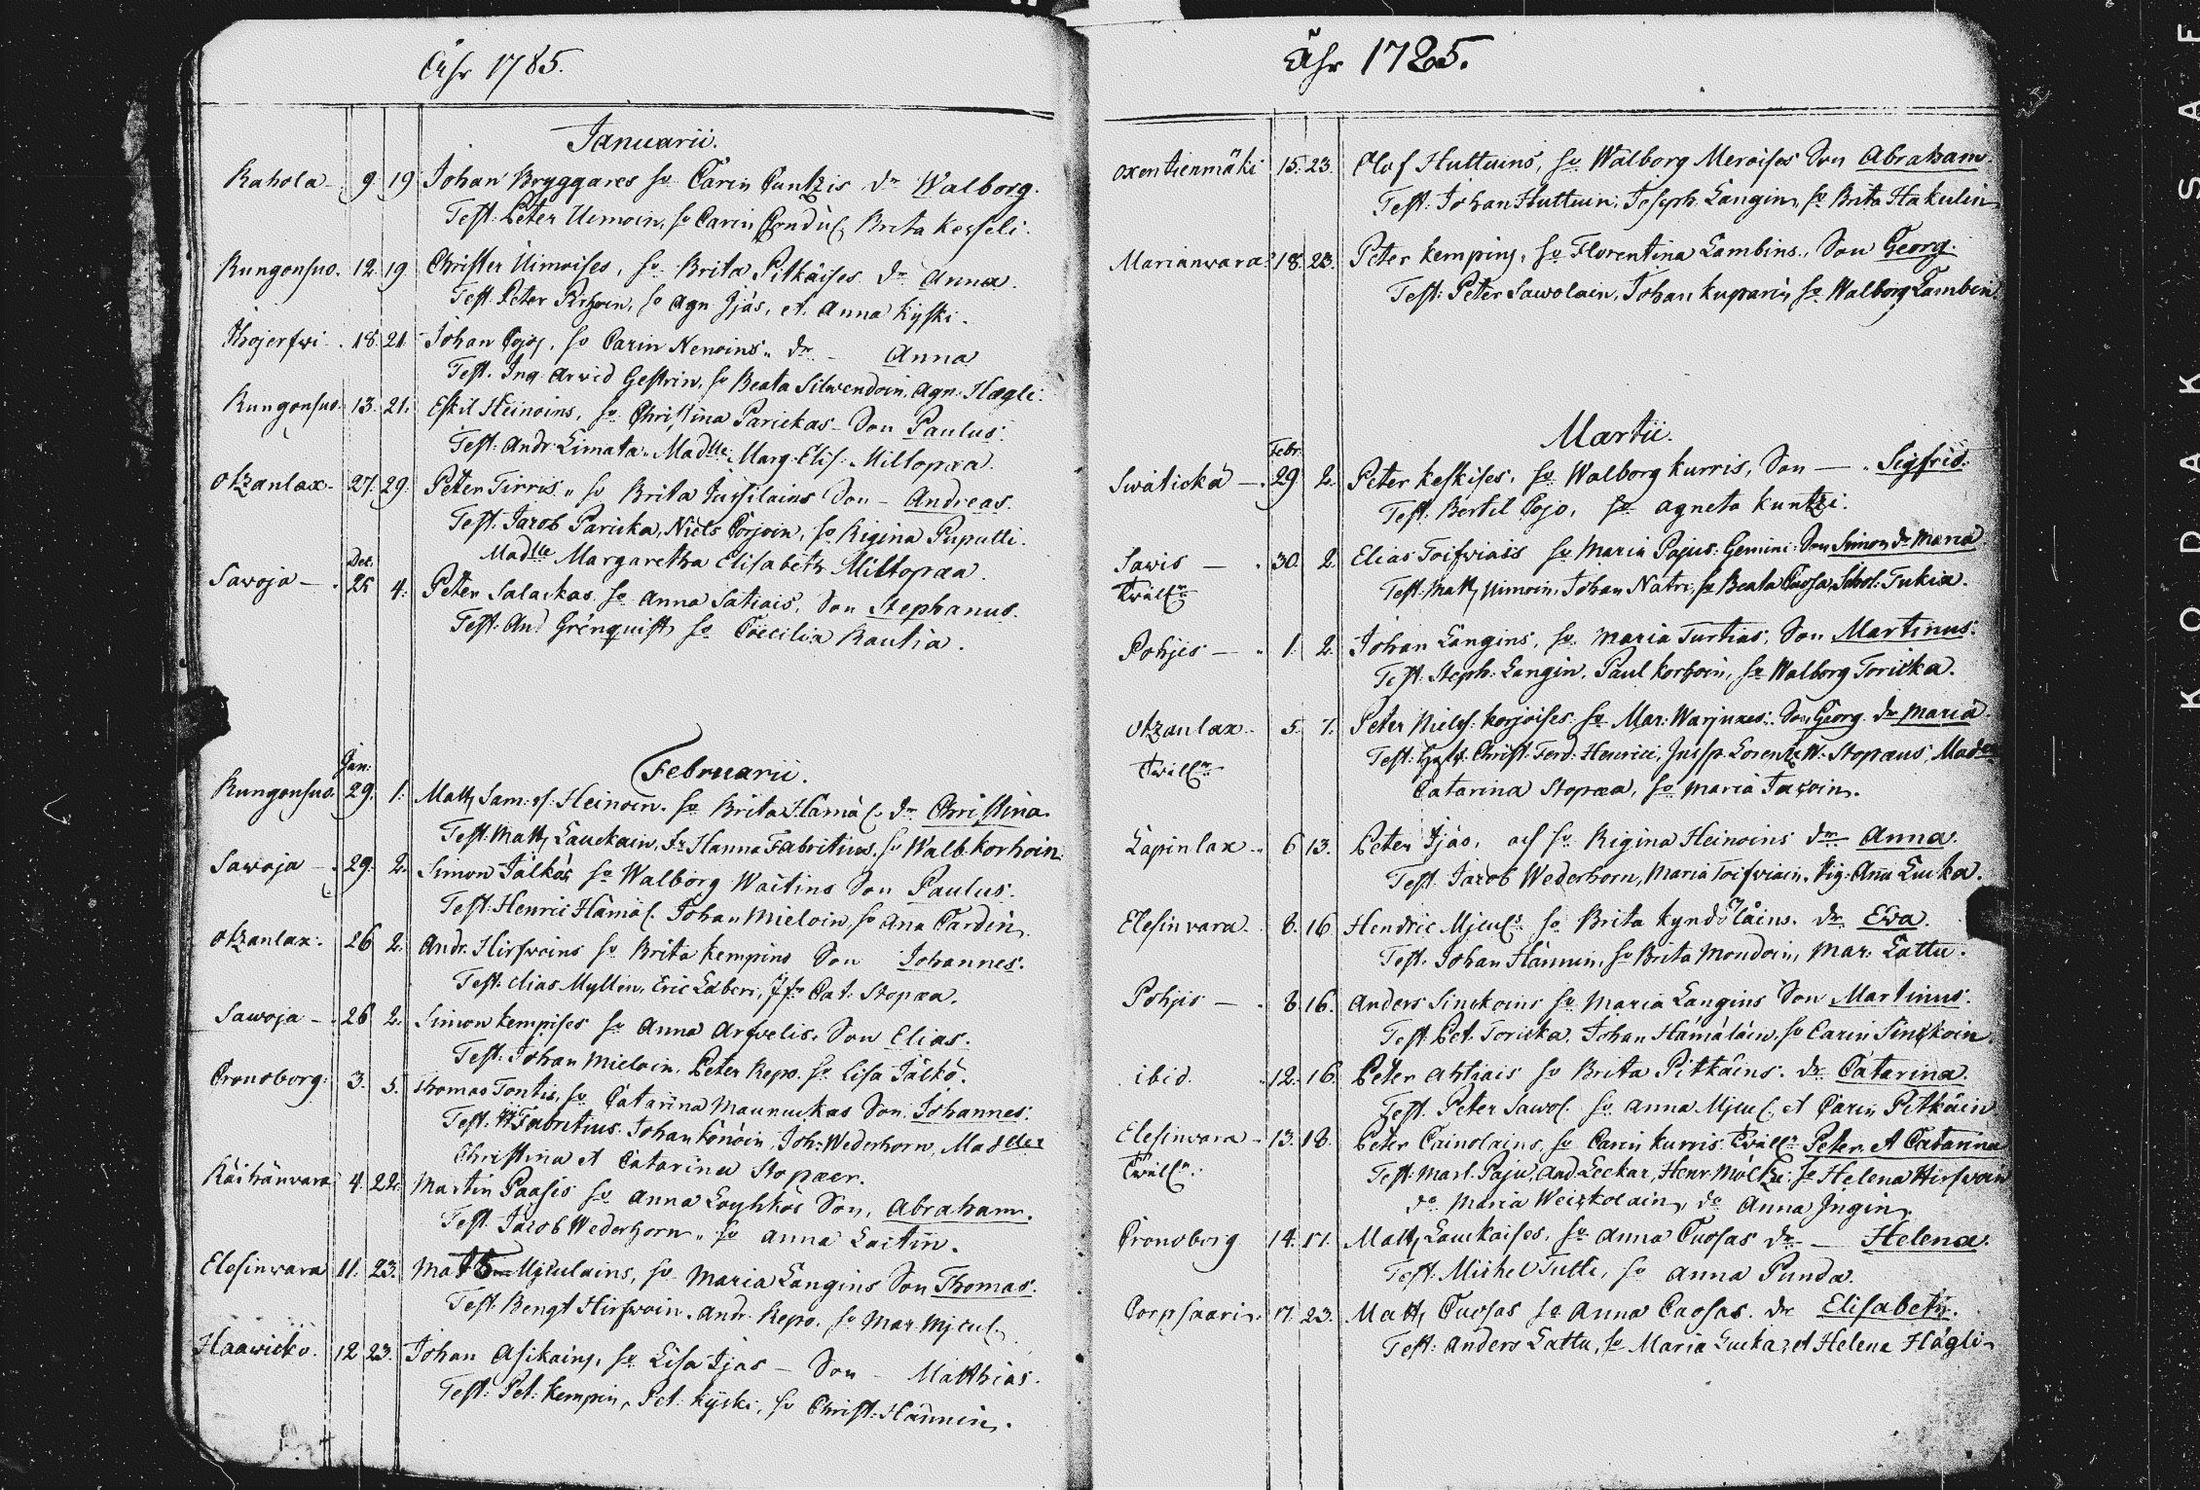 Åhr 1785.
Januarii.
Kahola - 9 19 Johan Bryggares H: Carin Cuntzis dr Walborg.
Test: Peter Uimoin, H: Carin Brita Kesseli.
Kungonsuo. 12 19 Christer Uimoises, H: Brita Pitkäises dr Anna.
Test. Peter H: Agn Ijäs, et. Anna Kyski.
18. 21 Johan H: Carin Nenoins dr - Anna
Test. Ing. Arwid Gestrin, H: Beata Silwendoin, Agn: Hægli.
Kungonsuo. 13. 21. Eskil Heinoins, H: Christina Parickas - Son Paulus.
Test: Andr. Limata. Madlle: Marg. Elis: Miltopæa.
Otzanlax - 27. 29. Peter Tirris H: Brita Jussilains Son - Andreas.
Test: Jacob Paricka, Niels H: Rigina Puputti.
Madlle Margaretha Elisabeth Miltopæa.
Dec.
Sawoja - 25 4. Peter Salackas H: Anna Satiais, Son Stephanus.
Test: And Grönquist, H: Cæcilia Rautia.
Jan:
Februarii.
Kungonsuo. 29. 1. Matts Sam: sf: Heinoin. H: Brita Hämäl. dr Christina.
Test: Matts Lauckain, Hr Hanna Fabritius, H: Walb. Korhoin.
Sawoja - 29. 2. Simon Jälkös H: Walborg Waitins Son Paulus.
Test: Henric Hämäl. Johan Mieloin, H: Ana Tardin.
Otzanlax. 26 2. Andr. Hirfwoins H: Brita Kempins Son Johannes.
Test: Elias Myllin, Eric Jfr Cat. Stopæa.
Sawoja - 26 2. Simon Kempises H: Anna Arfvelis, Son Elias.
Test: Johan Mieloin. Peter Repo. H: Lisa Jälkö.
Cronoborg. 3. 5. Thomas Tontis, H: Catarina Maunuckas Son: Johannes.
Test. Hr Fabritius. Johan Könöin, Joh: Wederhorn, Madller
Christina et Catarina Stopæer.
4. 22. Martin Paasis H: Anna Son, Abraham.
Test. Jacob Wederhorn H: Anna Laitin.
Elesinwara 11. 23. Matts Mickulains, H: Maria Langins Son Thomas.
Test. Bengt Hirfwoin. Andr. Repo. H: Mar. Mjcul.
Haawicko. 12 23. Johan Asikains, H: Lisa Ijas - Son - Matthias.
Test: Pet: Kempin, Pet: Kyski, H: Christ: Hännin.
Åhr 1725.
Oxentienmäki 15. 23. Olof Huttuins, H: Walborg Meroises Son Abraham.
Test: Johan Huttuin, Joseph Langin, H: Brita Hakulin
Marianwara 18. 23. Peter Kempins, H: Florentina Lambins, Son Georg.
Test: Peter Sawolain, Johan Kuparin, H: Walborg Lambin.
Martii.
Febr:
29 2. Peter Keskises, H: Walborg Kurris, Son - Sigfrid.
Test. Bertil Pojo, H: Agneta Kuntzi.
Sawis - 30. 2. Elias Toifwiais H: Maria Pajus. Gemini. Son Simon dr Maria
Twill Test: Matts Uimoin, Johan Natri, H: Beata Tuosa, Tukia.
Pohjis - 1. 2. Johan Langins, H: Maria Turtias, Son Martinus.
Test. Steph: Langin, Paul Korhoin, H: Walborg Toricka.
Otzanlax. 5. 7. Peter Niels. Korjoises H: Mar: Warjuxes. Son Georg dr Maria
Twill Test: Christ: Ferd: Henrici, Lorentz W. Stopæus, Madlle
Catarina Stopæa, H: Maria
Lapinlax 6 13. Peter Ijäs, H: Rigina Heinoins dr Anna.
Test. Jacob Wederhorn, Maria Toifwiain, Pig. Ana Lucka.
Elesinwara. 8. 16 Hendric H: Brita Kyndöläins. dr Ewa.
Test. Johan Hännin, H: Brita Mondoin, Mar: Lattu.
Pohjis - 8 16. Anders Sinckoins H: Maria Langins Son Martinus.
Test. Pet. Toricka, Johan Hämäläin, H: Carin Sinckoin.
ibid. 12. 16. Peter Ahtiais H: Brita Pitkäins. dr Catarina.
Test. Peter Sawol. H: Anna Mjcul. et Carin Pitkäin
Elesinwara - 13. 18. Peter Cainolains, H: Carin Kurris. Twill Peter et Catarina
Twill Test. Marl. Paju, And. Leckar, Henr. H: Helena Hirfwoin
do Maria do Anna Ingin.
Cronoborg 14. 17. Matts Lauckaises, H: Anna Tuosas dr - Helena.
Test. Michel Tutti, H: Anna Punda.
Corpsaari. 17. 23. Matts Tuosas H: Anna Caosas. dr Elisabeth.
Test: Anders Lattu, H: Maria Lucka, et Helena Hägli
KODAK SAFE